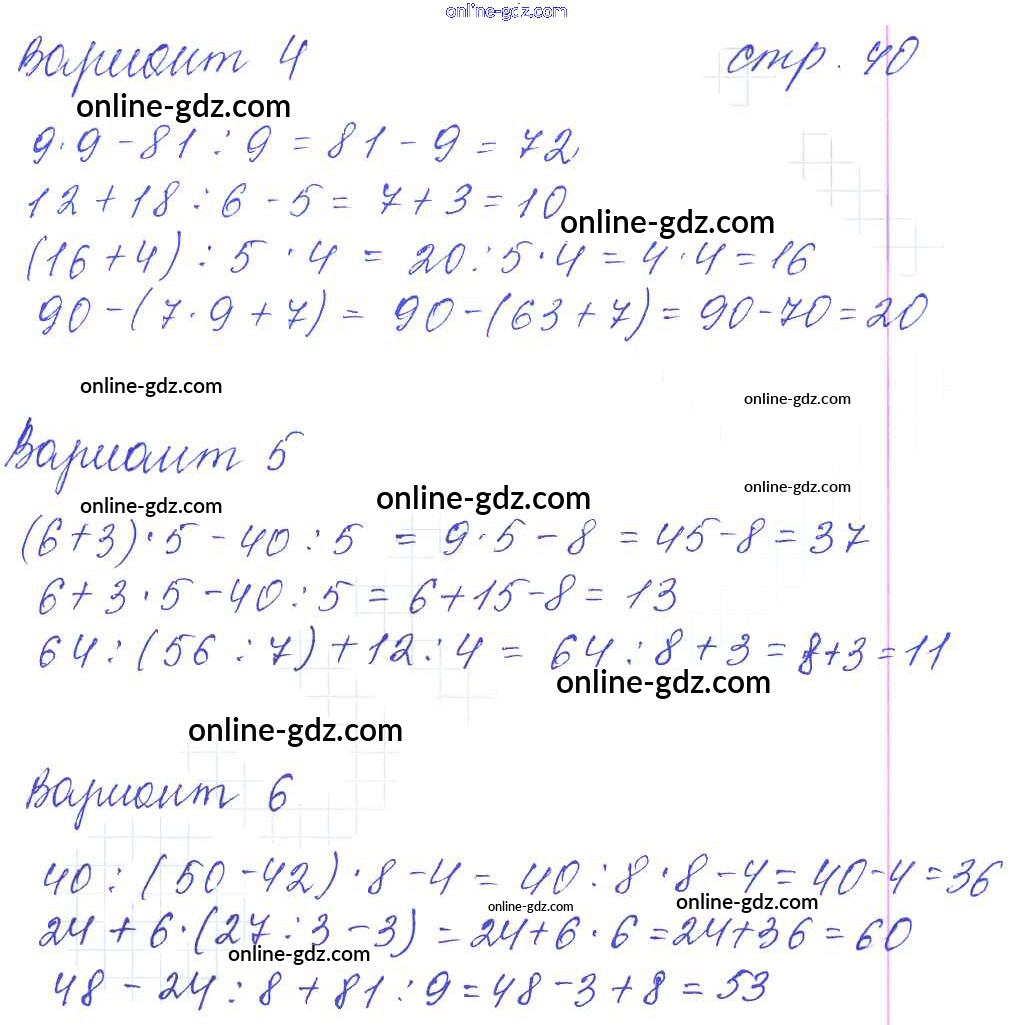 online-gdz.com
Вариант 4 стр. 40
online-gdz.com
9·9-81:9=81-9=72
12+18:6-5=7+3=10
online-gdz.com
(16+4):5·4=20:5·4=4·4=16
90-(7·9+7)=90-(63+7)=90-70=20
online-gdz.com
online-gdz.com
Вариант 5
online-gdz.com
online-gdz.com
online-gdz.com
(6+3)·5-40:5=9·5-8=45-8=37
6+3·5-40:5=6+15-8=13
64:(56:7)+12:4=64:8+3=8+3=11
online-gdz.com
online-gdz.com
Вариант 6
40:(50-42)·8-4=40:8·8-4=40-4=36
online-gdz.com
online-gdz.com
24+6·(27:3-3)=24+6·6=24+36=60
online-gdz.com
48-24:8+81:9=48-3+8=53